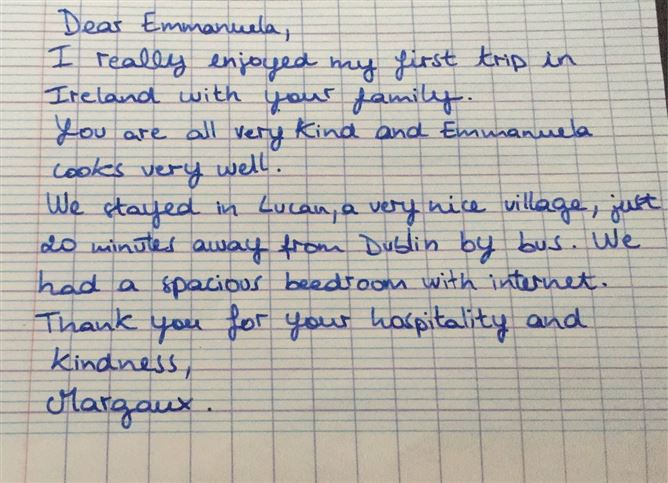 Dear Emmanuela,
I really enjoyed my first trip in
Ireland with your family.
You are all very kind and Emmanuela
cooks very well.
We stayed in Lucan, a very nice village, just
20 minutes away from Dublin by bus. We
had a spacious beedroom with internet.
Thank you for your hospitality and
kindness,
Margaux.